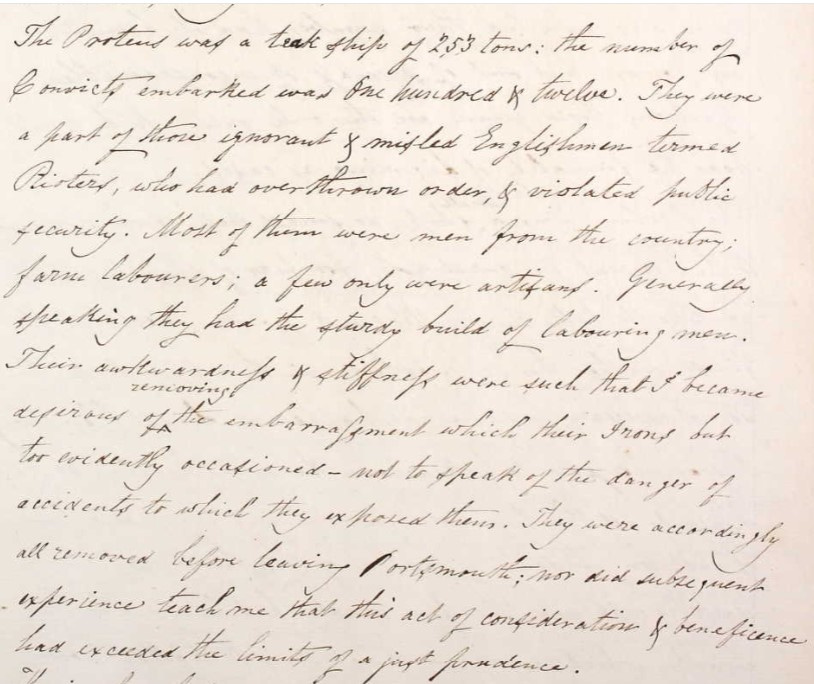 The Proteus was a teak ship of 253 tons: the number of
Convicts embarked was One hundred & twelve. They were
a part of those ignorant & misled Englishmen termed
Rioters, who had overthrown order, & violated public
security. Most of them were men from the country;
farm labourers; a few only were artisans. Generally
speaking they had the sturdy build of labouring men.
Their awkwardness & stiffness were such that I became
removing
desirous of the embarrassment which their Irons but
too evidently occasioned – not to speak of the danger of
accidents to which they exposed them. They were accordingly
all removed before leaving Portsmouth; nor did subsequent
experience teach me that this act of consideration & beneficence
had exceeded the limits of a just prudence.